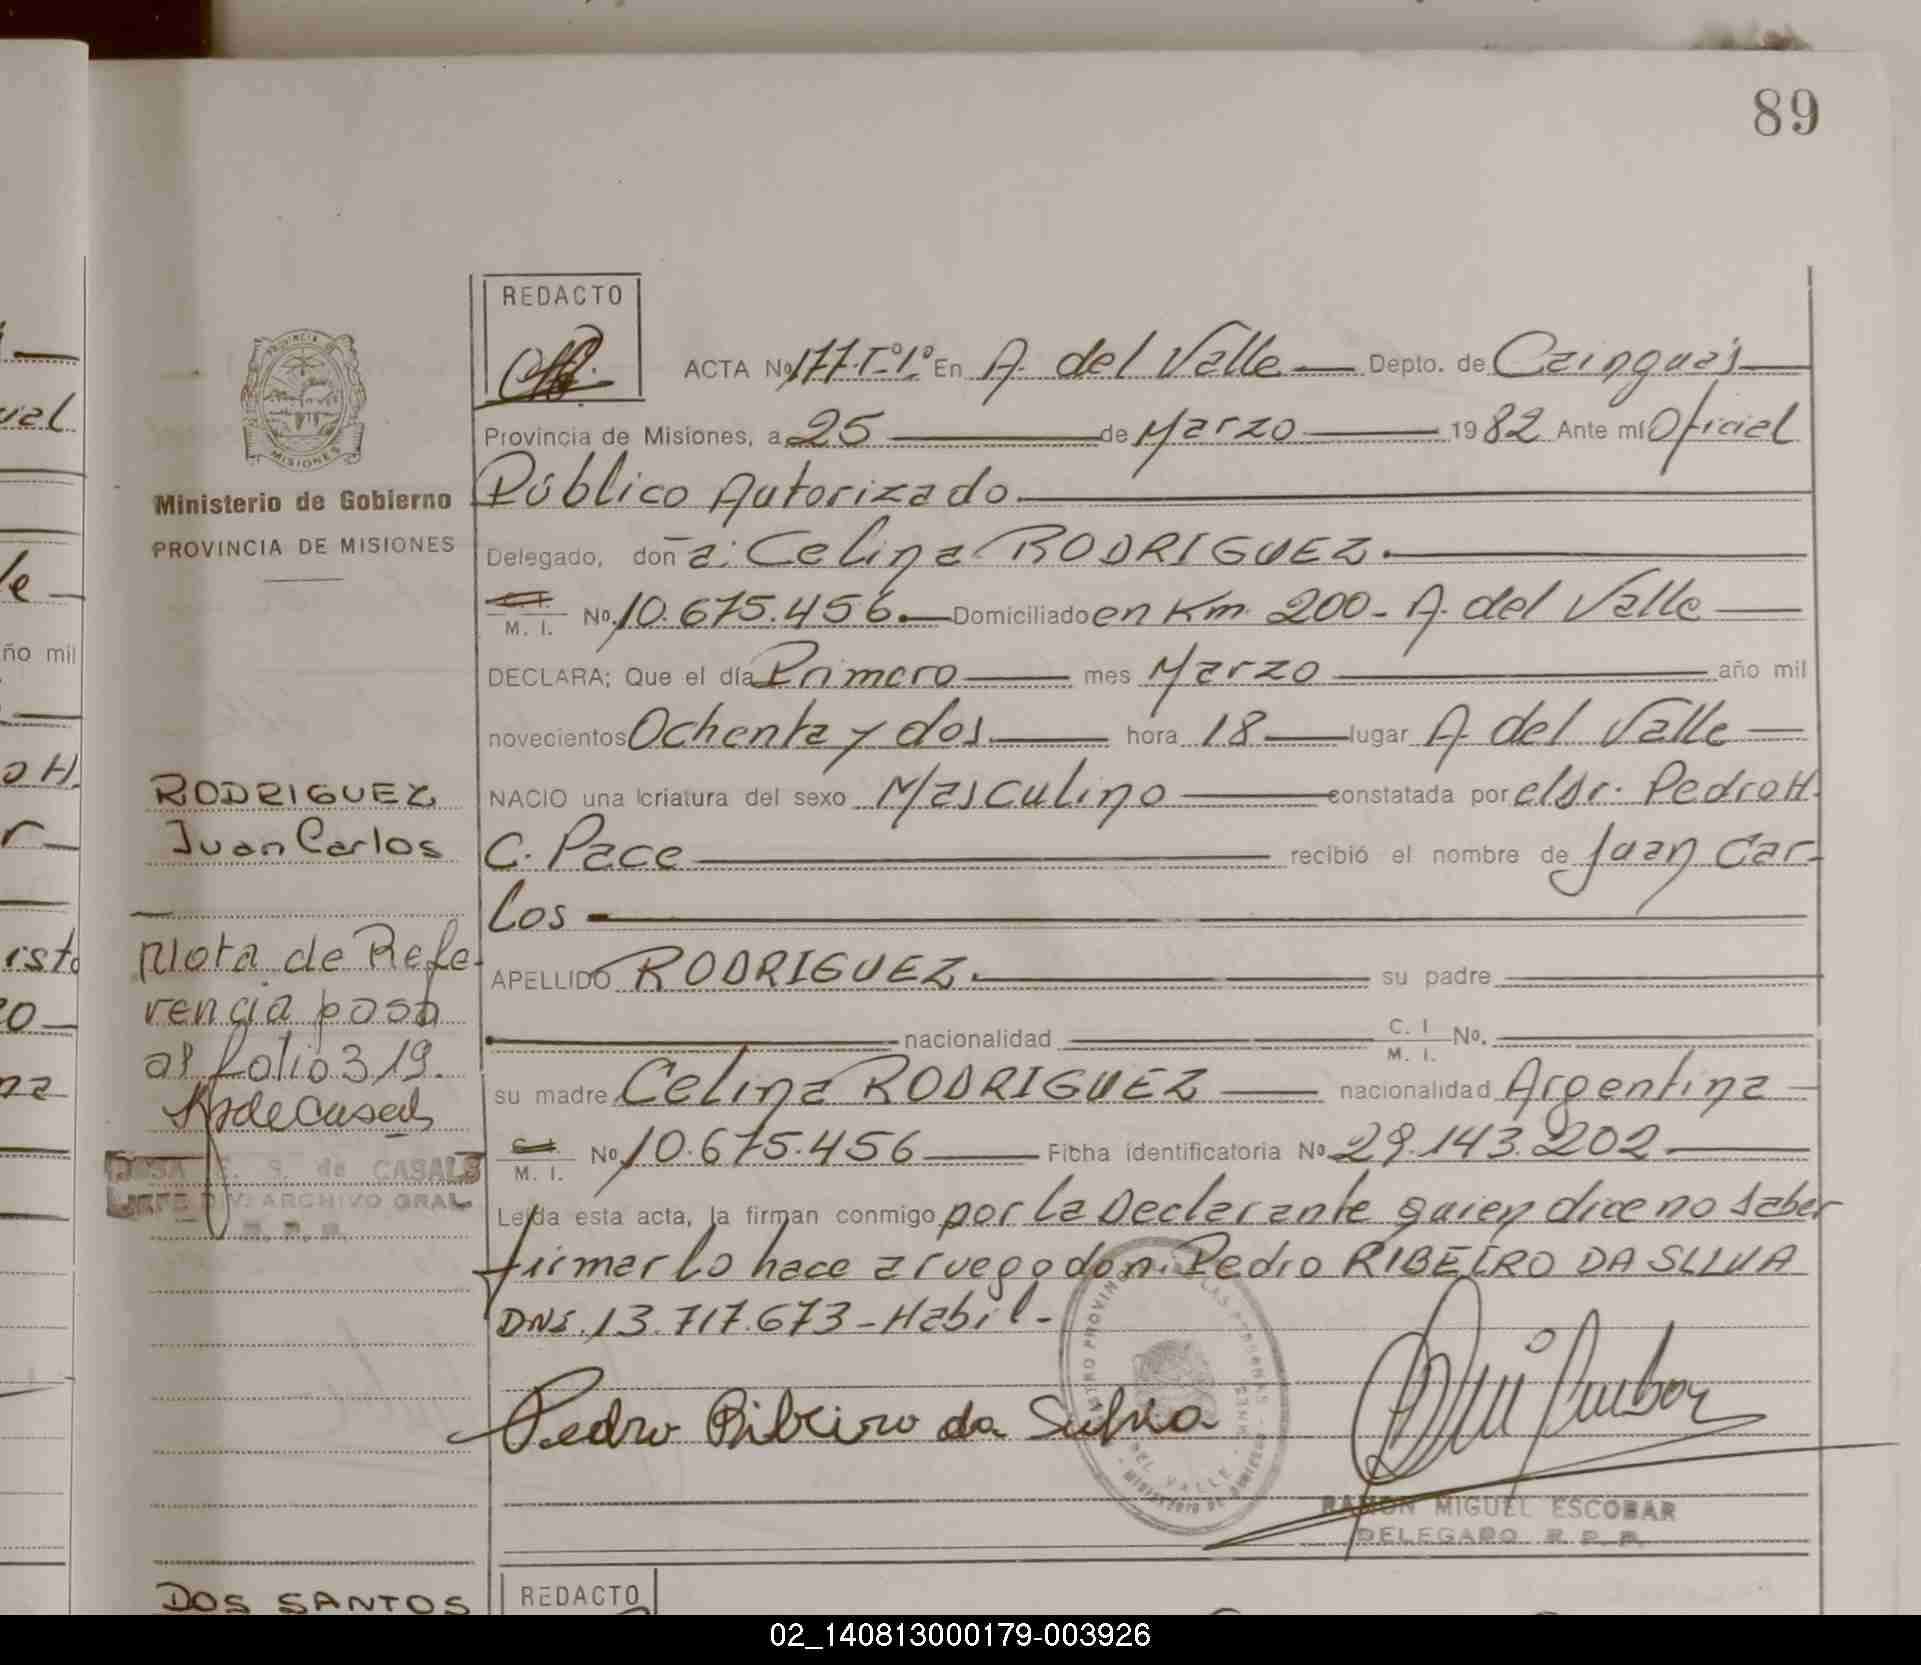 89
REDACTO
ACTA No 177.Tº1º En A. del Valle Depto. de Cainguás
Provincia de Misiones, a 25 de Marzo 1982 Ante mí Oficial
Público Autorizado
Delegado, doña: Celina RODRIGUEZ.
C. I.
M. I. No. 10.675.456. Domiciliado en Km. 200 - A. del Valle
DECLARA; Que el día Primero mes Marzo año mil
novecientos Ochenta y dos hora 18 lugar A del Valle
NACIO una criatura del sexo Masculino constatada por el sr. Pedro H.
C. Pace recibió el nombre de Juan Car-
los
APELLIDO RODRIGUEZ. su padre
nacionalidad C. I. M. I. No.
su madre Celina RODRIGUEZ nacionalidad Argentina
C. I.
M. I. No. 10.675.456 Ficha identificatoria No 29.143.202
Leída esta acta, la firman conmigo por la Declarante quien dice no saber
firmar lo hace a ruego don. Pedro RIBEIRO DA SILVA
DNI. 13.717.673 - Habil -
Pedro Ribeiro da Sulva
RAMON MIGUEL ESCOBAR
DELEGADO R. P. P.
PROVINCIA DE
MISIONES
Ministerio de Gobierno
PROVINCIA DE MISIONES
RODRIGUEZ
Juan Carlos
Nota de Refe-
rencia pasó
al folio 319.
ROSA E. S. de CASALS
JEFE DIV. ARCHIVO GRAL.
R. P. P.
DOS SANTOS
REDACTO
02_140813000179-003926